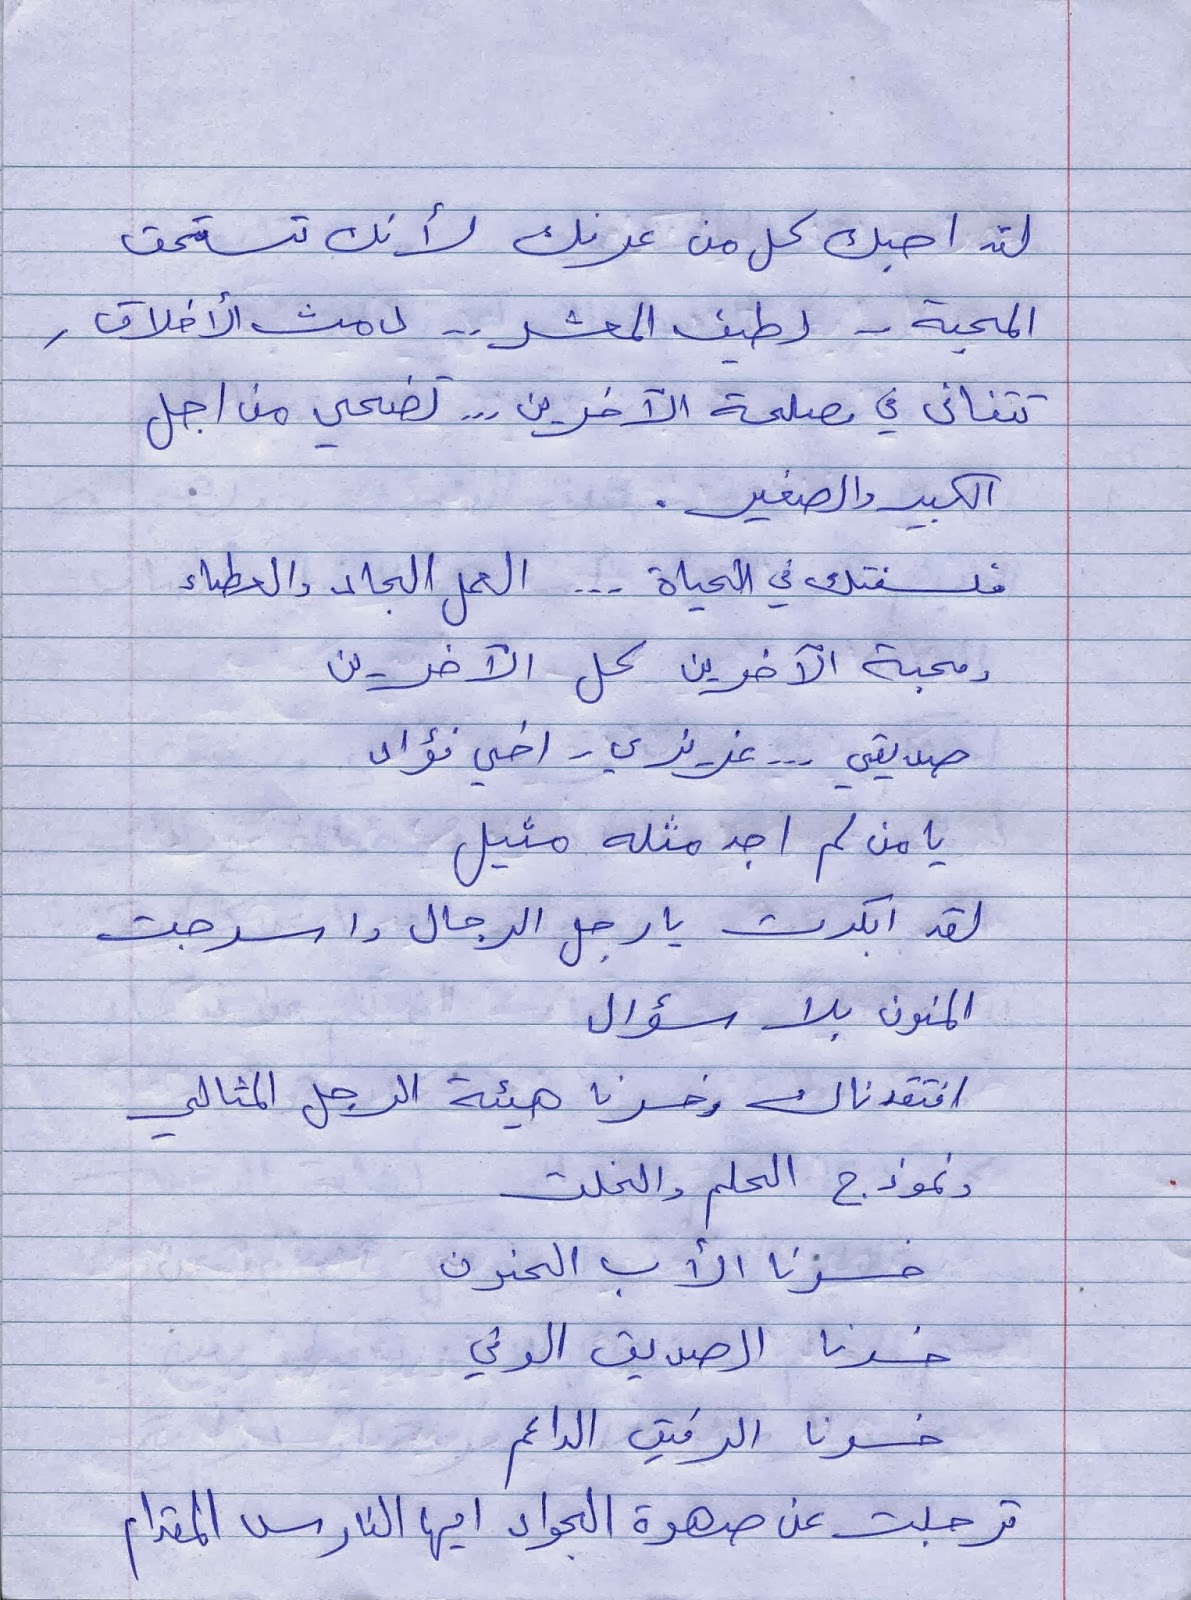 لقد احبك كل من عرفك لأنك تستحق
المحبة - لطيف المعشر ... دمث الأخلاق ,
تتفانى في مصلحة الآخرين ... تضحي من اجل
الكبير والصغير .
فلسفتك في الحياة ... العمل الجاد والعطاء
ومحبة الآخرين كل الآخرين
صديقي ... عزيزي - اخي فؤاد
يا من لم اجد مثله مثيل
لقد ابكرت يا رجل الرجال واسرجت
المنون بلا سؤال
افتقدناك وخسرنا هيئة الرجل المثالي
ونموذج الحلم والخلق
خسرنا الأب الحنون
خسرنا الصديق الوفي
خسرنا الرفيق الداعم
ترجلت عن صهوة الجواد ايها الفارس المقدام